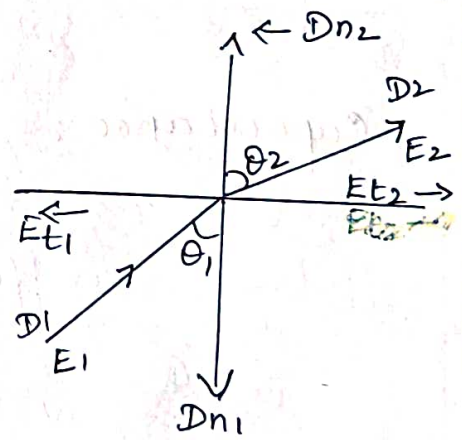 ← Dn2
D2
θ2
E2
Et2 →
←
Et1
θ1
D1
E1
Dn1